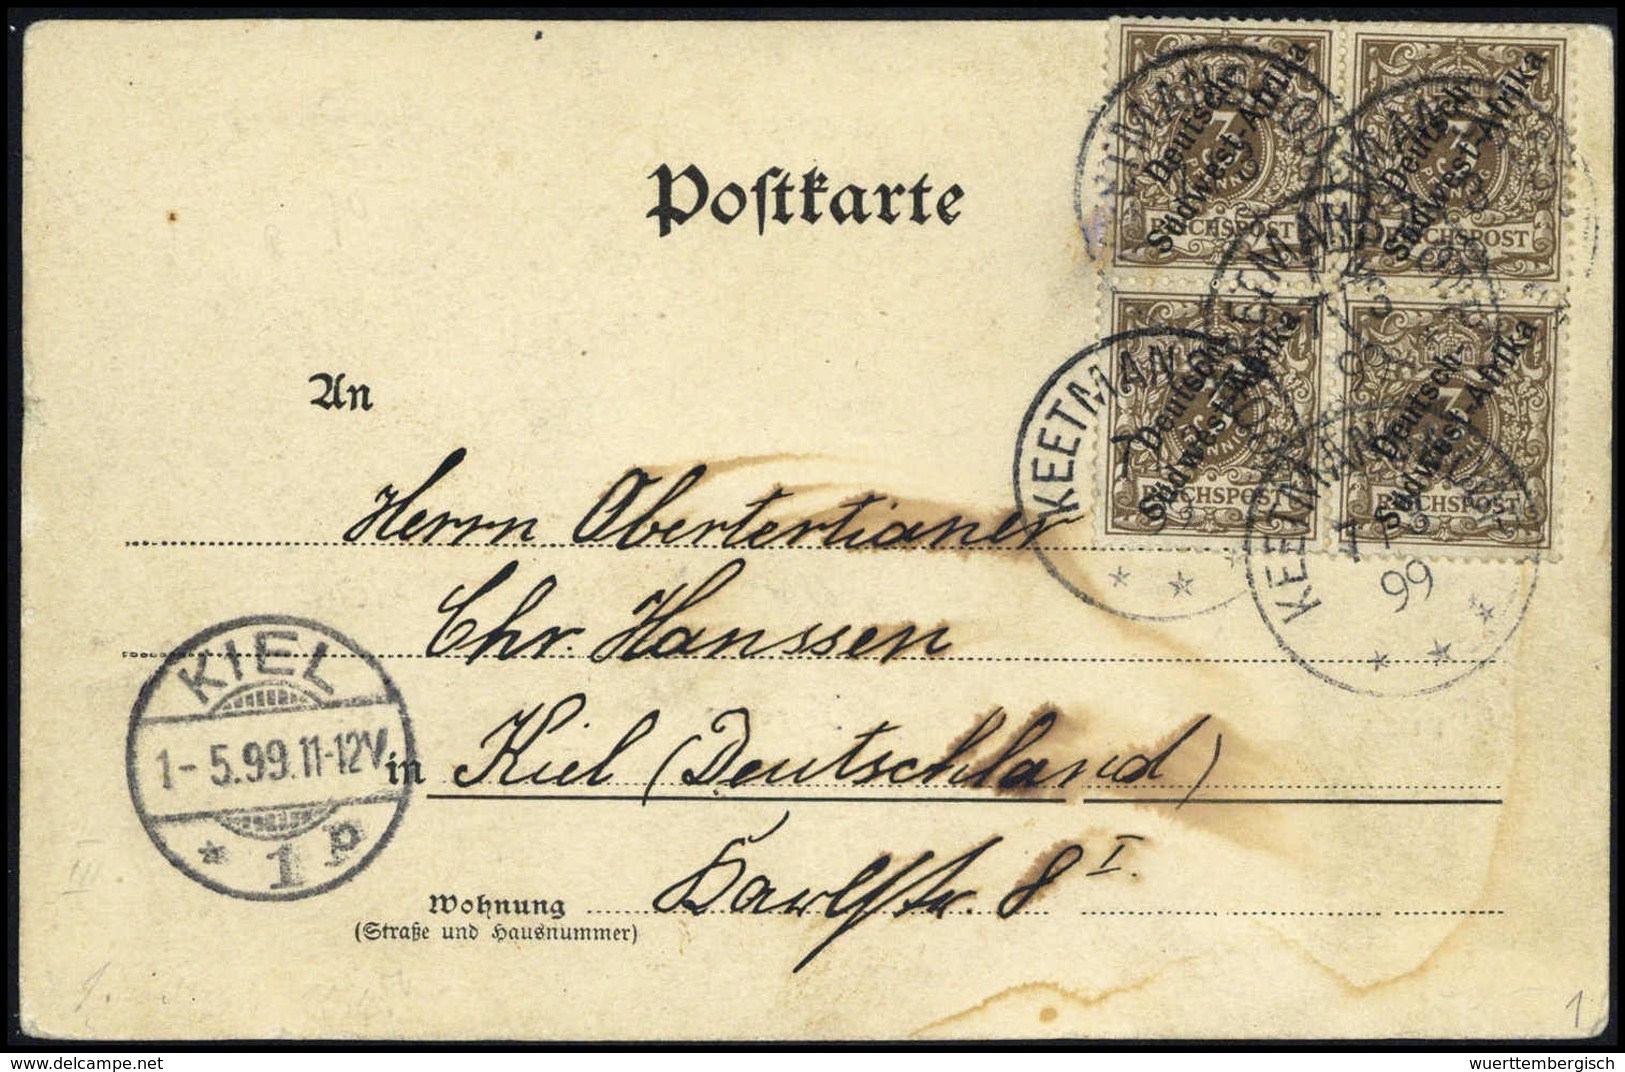 Postkarte
Deutsch-
Südwest-Afrika
3
PFENNIG
REICHSPOST
Deutsch-
Südwest-Afrika
3
REICHSPOST
Deutsch-
Südwest-Afrika
REICHSPOST
Deutsch-
Südwest-Afrika
3
REICHSPOST
KEETMAN
KEETMAN
99
An
Herrn Obertertianer
Chr. Hanssen
in Kiel (Deutschland)
Karlstr. 8 I.
Wohnung
(Straße und Hausnummer)
KIEL
1-5.99.11-12V.
* 1 p
III.
1
delcampe.net
wuerttembergisch